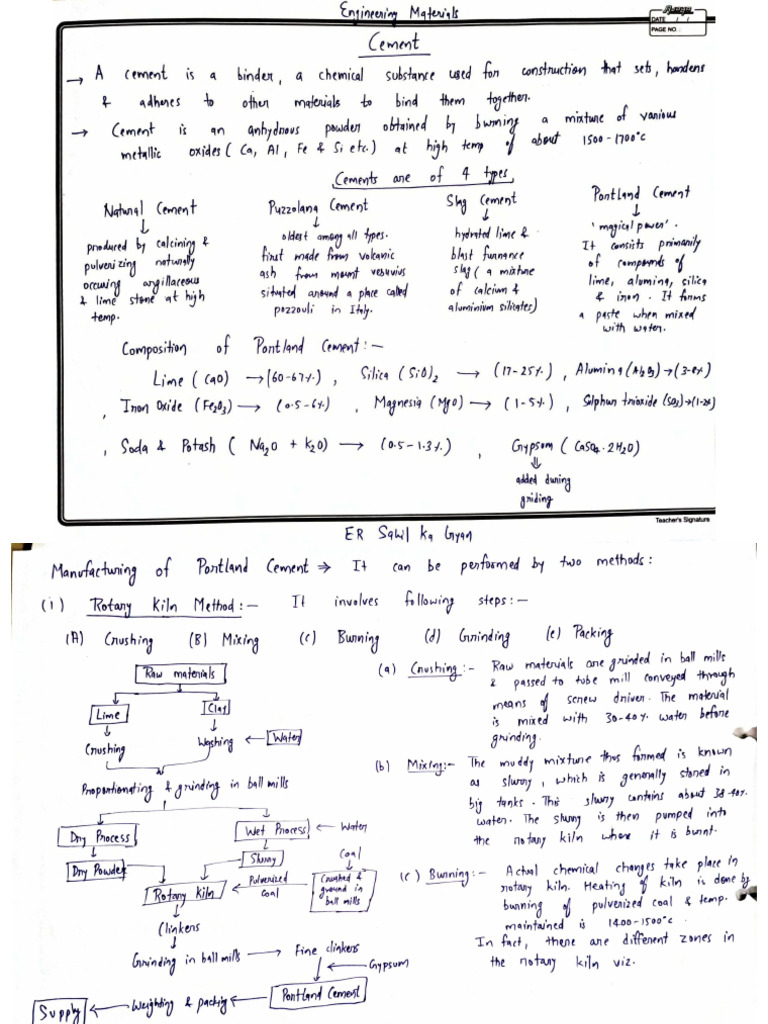 Engineering Materials
DATE / /
PAGE NO.:
Cement
→ A cement is a binder, a chemical substance used for construction that sets, hardens
& adheres to other materials to bind them together.
→ Cement is an anhydrous powder obtained by burning a mixture of various
metallic oxides (Ca, Al, Fe & Si etc.) at high temp of about 1500-1700°c
Cements are of 4 types,
Natural Cement
↓
produced by calcining &
pulverizing naturally
occuring argillaceous
& lime stone at high
temp.
Puzzolana Cement
↓
oldest among all types.
first made from volcanic
ash from mount vesuvius
situated around a place called
pozzouli in Italy.
Slag Cement
↓
hydrated lime &
blast furnance
slag (a mixture
of calcium &
aluminium silicates)
Portland Cement
↓
'magical power'.
It consists primarily
of compounds of
lime, alumina, silica
& iron. It forms
a paste when mixed
with water.
Composition of Portland Cement:-
Lime (CaO) → (60-67%), Silica (SiO)₂ → (17-25%), Alumina (Al₂O₃) → (3-8%)
, Iron Oxide (Fe₂O₃) → (0.5-6%), Magnesia (MgO) → (1-5%), Sulphur trioxide (SO₃) → (1-2%)
, Soda & Potash (Na₂O + K₂O) → (0.5-1.3%), Gypsum (CaSO₄.2H₂O)
⇓
added during
griding
Teacher's Signature
ER Sahil Ka Gyan
Manufacturing of Portland Cement ⇒ It can be performed by two methods:
(i) Rotary Kiln Method:- It involves following steps:-
(A) Crushing (B) Mixing (c) Burning (d) Grinding (e) Packing
Raw materials
Lime
Clay
Crushing
Washing ← Water
Proportionating & grinding in ball mills
Dry Process
Wet Process ← Water
Dry Powder
Slurry
Coal
Rotary Kiln
Pulverized
coal
Crushed &
ground in
ball mills
Clinkers
Grinding in ball mills → Fine clinkers
← Gypsum
Supply ← Weighting & packing ← Portland Cement
(a) Crushing:- Raw materials are grinded in ball mills
& passed to tube mill conveyed through
means of screw driver. The material
is mixed with 30-40% water before
grinding.
(b) Mixing:- The muddy mixture thus formed is known
as slurry, which is generally stored in
big tanks. This slurry contains about 38-40%
water. The slurry is then pumped into
the rotary kiln where it is burnt.
(c) Burning:- Actual chemical changes take place in
rotary kiln. Heating of kiln is done by
burning of pulverized coal & temp.
maintained is 1400-1500°c
In fact, there are different zones in
the rotary kiln viz.